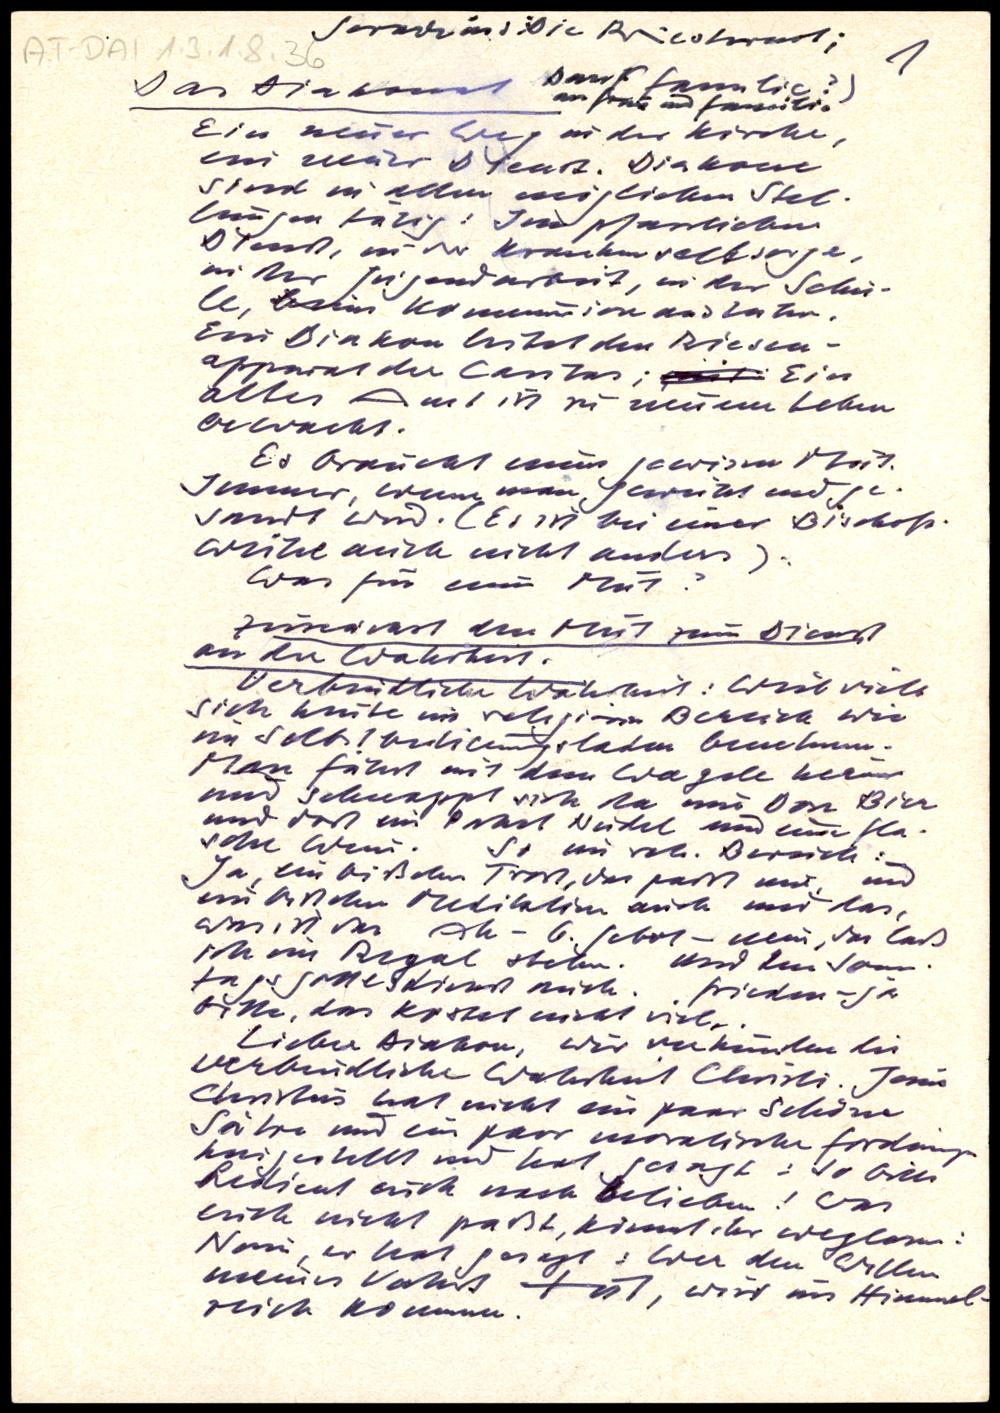 AT-DAI 1.3.1.8.36
1
Das Diakonat Dank Familie?)
an Frau und Familie.
Ein neuer Weg in der Kirche,
ein neuer Dienst. Diakone
sind in allen möglichen Stel-
lungen tätig: Im pfarrlichen
Dienst, in der Krankenseelsorge,
in der Jugendarbeit, in der Schu-
le, beim Kommunion austeilen.
Ein Diakon leitet den Riesen-
apparat der Caritas; Ein
altes Amt ist zu neuem Leben
erwacht.
Es braucht einen gewissen Mut.
Immer, wenn man geweiht und ge-
sandt wird. (Es ist bei einer Bischofs-
weihe auch nicht anders).
Was für ein Mut?
Zunächst den Mut zum Dienst
an der Wahrheit.
Verbindliche Wahrheit: Weil viele
sich heute im religiösen Bereich wie
im Selbstbedienungsladen benehmen.
Man fährt mit dem Wagele herum
und schnappt sich da eine Dose Bier
und dort ein Paket Nudel und eine Fla-
sche Wein. So im rel. Bereich:
Ja, ein bißchen Trost, das paßt mir, und
ein bißchen Meditation auch und das,
was ist das Ah - 6. Gebot - nein, das laß
ich im Regal stehn. Und den Sonn-
tagsgottesdienst auch. Frieden - ja
bitte, das kostet nicht viel.
Lieber Diakon, wir verkünden die
verbindliche Wahrheit Christi. Jesus
Christus hat nicht ein paar schöne
Sätze und ein paar moralische Forderungen
hingestellt und hat gesagt: So bitte
bedient euch nach Belieben! Was
euch nicht paßt, könnt ihr weglassen:
Nein, er hat gesagt: Wer den Willen
meines Vaters tut, wird ins Himmel-
reich kommen.